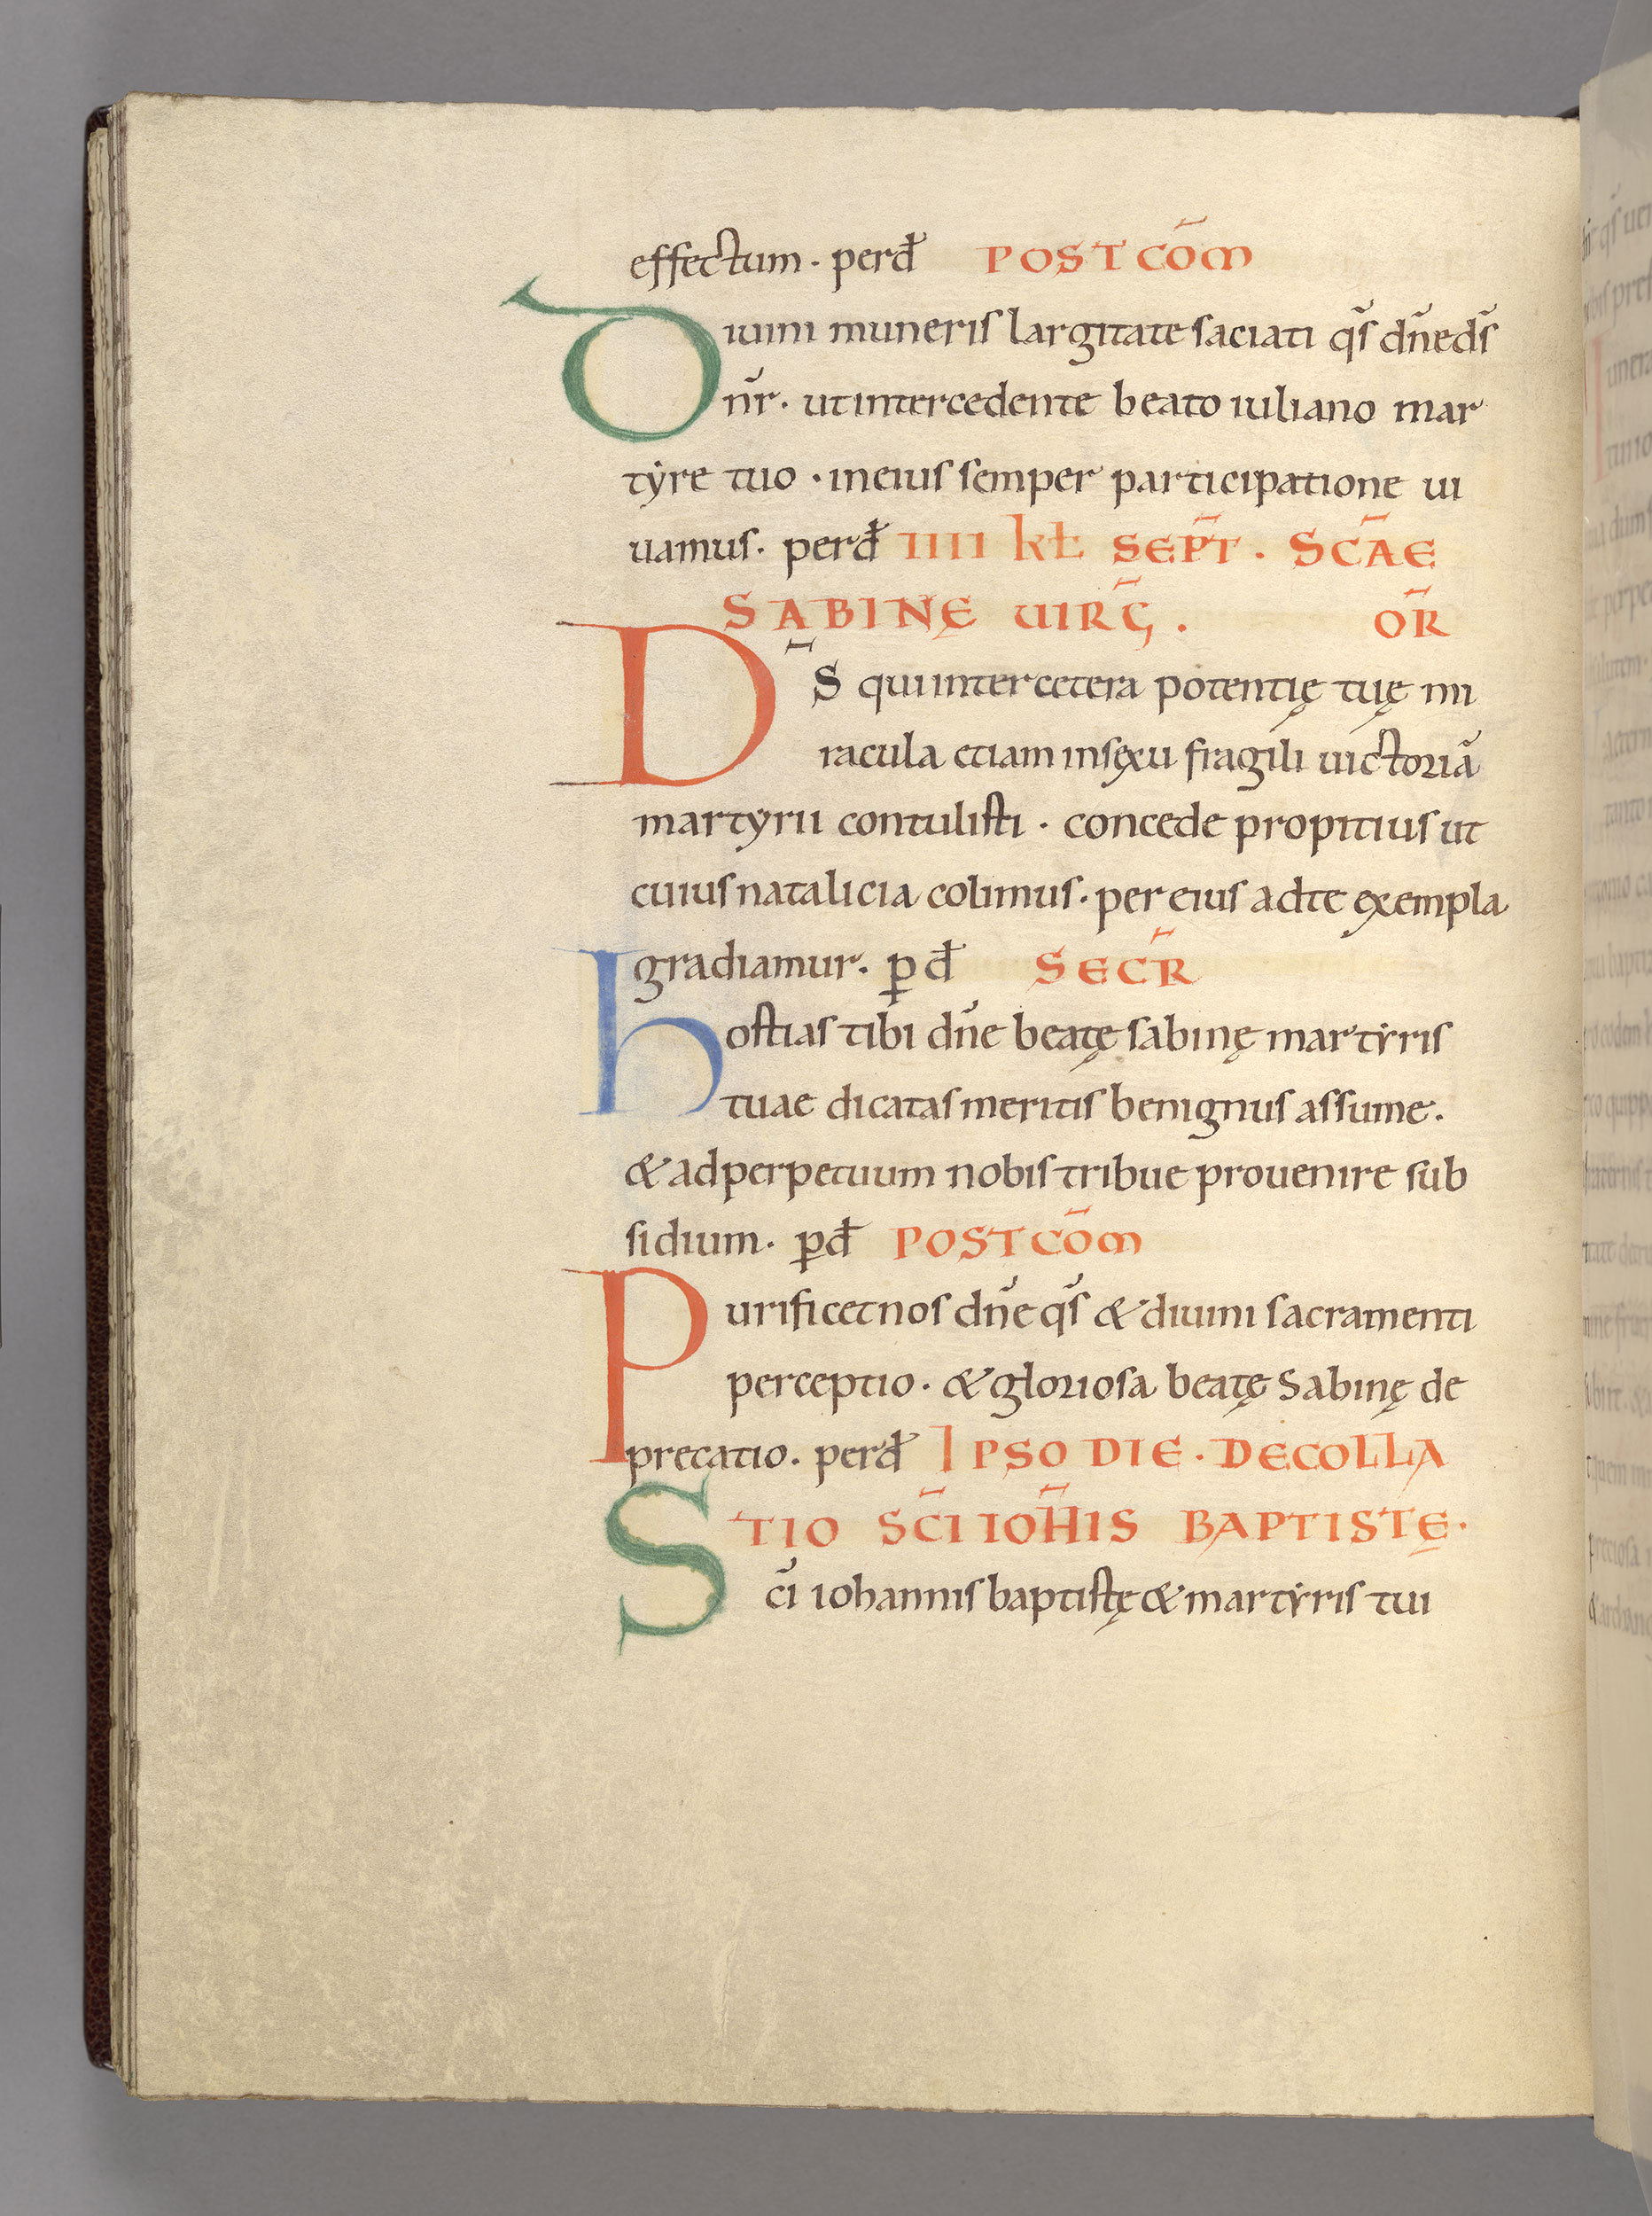 effectum · perđ POSTCOM̄
Diuini muneris largitate saciati qs̄ dn̄eds̄
nr̄ · utintercedente beato iuliano mar
tẏre tuo · ineius semper participatione ui
uamus · perđ IIII kƚ SEPT̄ . SC̄AE
SABINĘ UIRḠ . OR̄
DS̄ quiintercetera potentię tuę mi
racula etiam insęxu fragili uictoriā
martyrii contulisti · concede propitius ut
cuiusnatalicia colimus · per eius adte exempla
gradiamur · p̱đ SECR̄
hostias tibi dn̄e beatę sabinę martẏris
tuae dicatas meritis benignus assume ·
& adperpetuum nobis tribue prouenire sub
sidium · p̱đ POSTCOM̄
Purificetnos dn̄e qs̄ & diuini sacramenti
perceptio · & gloriosa beatę Sabinę de
precatio · perđ IPSO DIE · DECOLLA
TIO SC̄I IOH̄IS BAPTISTĘ ·
Sc̄i iohannis baptistę & martẏris tui